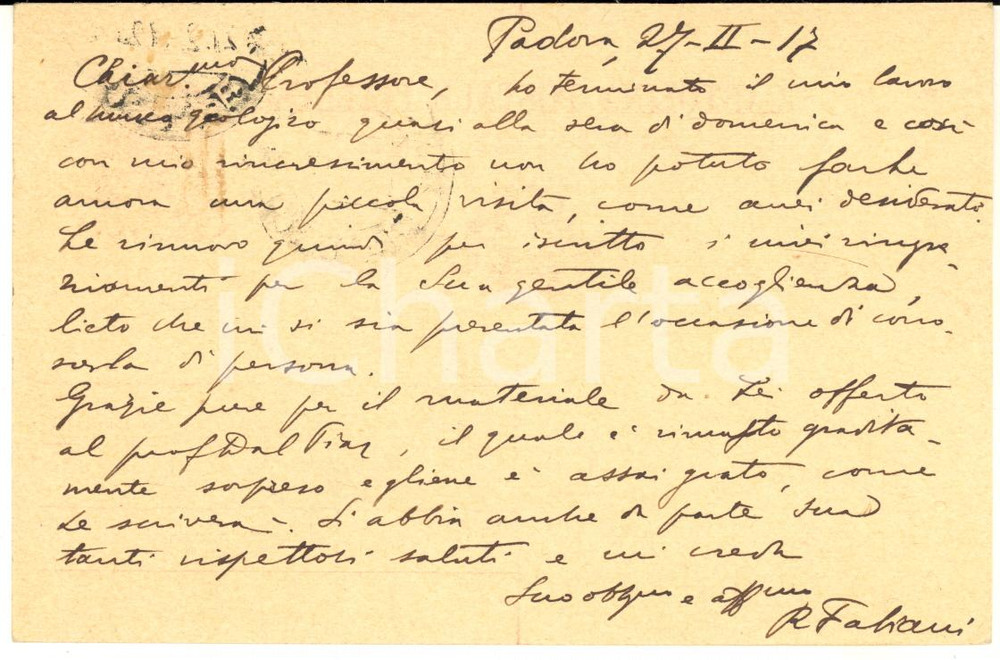 Padova, 27-II-17
Chiar.mo Professore, ho terminato il mio lavoro
al museo geologico quasi alla sera di domenica e così
con mio rincrescimento non ho potuto farLe
ancora una piccola visita, come avrei desiderato.
Le rinnovo quindi per iscritto i miei ringra-
ziamenti per la Sua gentile accoglienza,
lieto che mi si sia presentata l'occasione di cono-
scerla di persona.
Grazie pure per il materiale da Lei offerto
al prof Dal Piaz, il quale è rimasto gradita-
mente sorpreso e gliene è assai grato, come
Le scriverà. Si abbia anche da parte Sua
tanti rispettosi saluti e mi creda
Suo obbl.mo e aff.mo
R Fabiani
iCharta